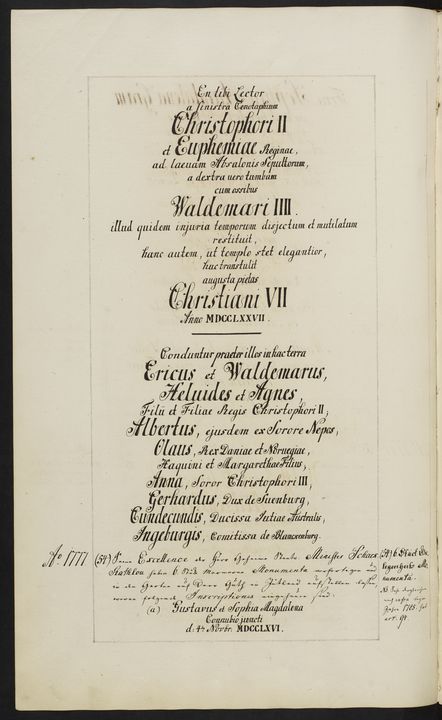 En tibi Lector
a sinistra Cenotaphium
Christophori II
et Euphemiae Reginae,
ad laeuam Absalonis Sepultorum,
a dextra uero tumbam
cum ossibus
Waldemari IIII.
illud quidem injuria temporum disjectum et mutilatum
restituit,
hanc autem, ut templo stet elegantior,
huc transtulit
augusta pietas
Christiani VII
Anno MDCCLXXVII.
Conduntur praeter illos in hac terra
Ericus et Waldemarus,
Heluides et Agnes,
Filii et Filiae Regis Christophori II;
Albertus, ejusdem ex Sorore Nepos,
Olaus, Rex Daniae et Noruegiae,
Haquini et Margarethae Filius,
Anna, Soror Christophori III,
Gerhardus, Dux de Suenburg,
Cundecundis, Ducissa Iutiae Australis,
Ingeburgis, Comitissa de Blanckenburg.
Ao 1777 (54) Seine Excellence der Herr Geheime Staats Minister Schack
Rathlou haben 6 Stück Monumenta
in den Garten auf Gut in Jütland aufstellen
worin folgende Inscriptiones sind:
(a) Gustavus et Sophia Magdalena
Connubio juncti
d: 4 Novbr. MDCCLXVI.
(54) 6 Stück
Monumenta